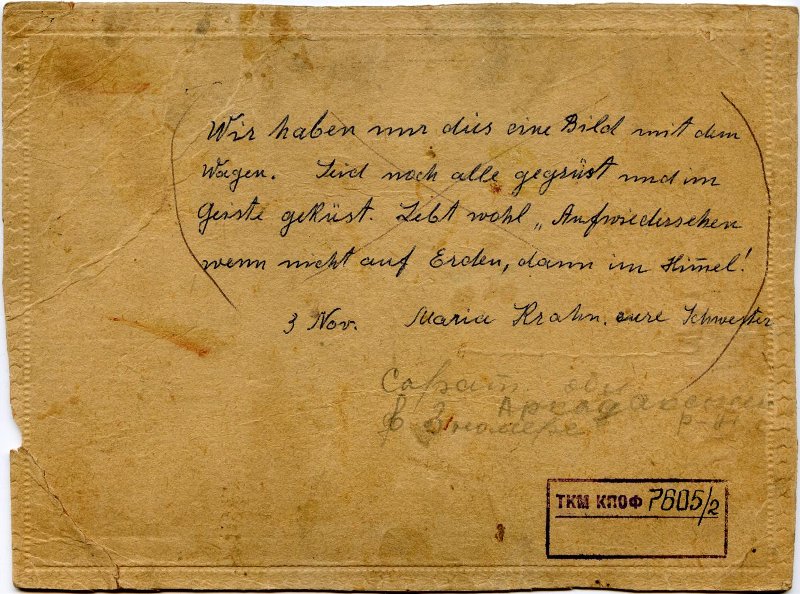 Wir haben nur dies eine Bild mit dem
Wagen. Seid noch alle gegrüst und im
Geiste geküst. Lebt wohl „Aufwiedersehen
wenn nicht auf Erden, dann im Himel!
3 Nov. Maria Krahn, eure Schwester
в
р-н
ТКМ КПОФ 7605/2